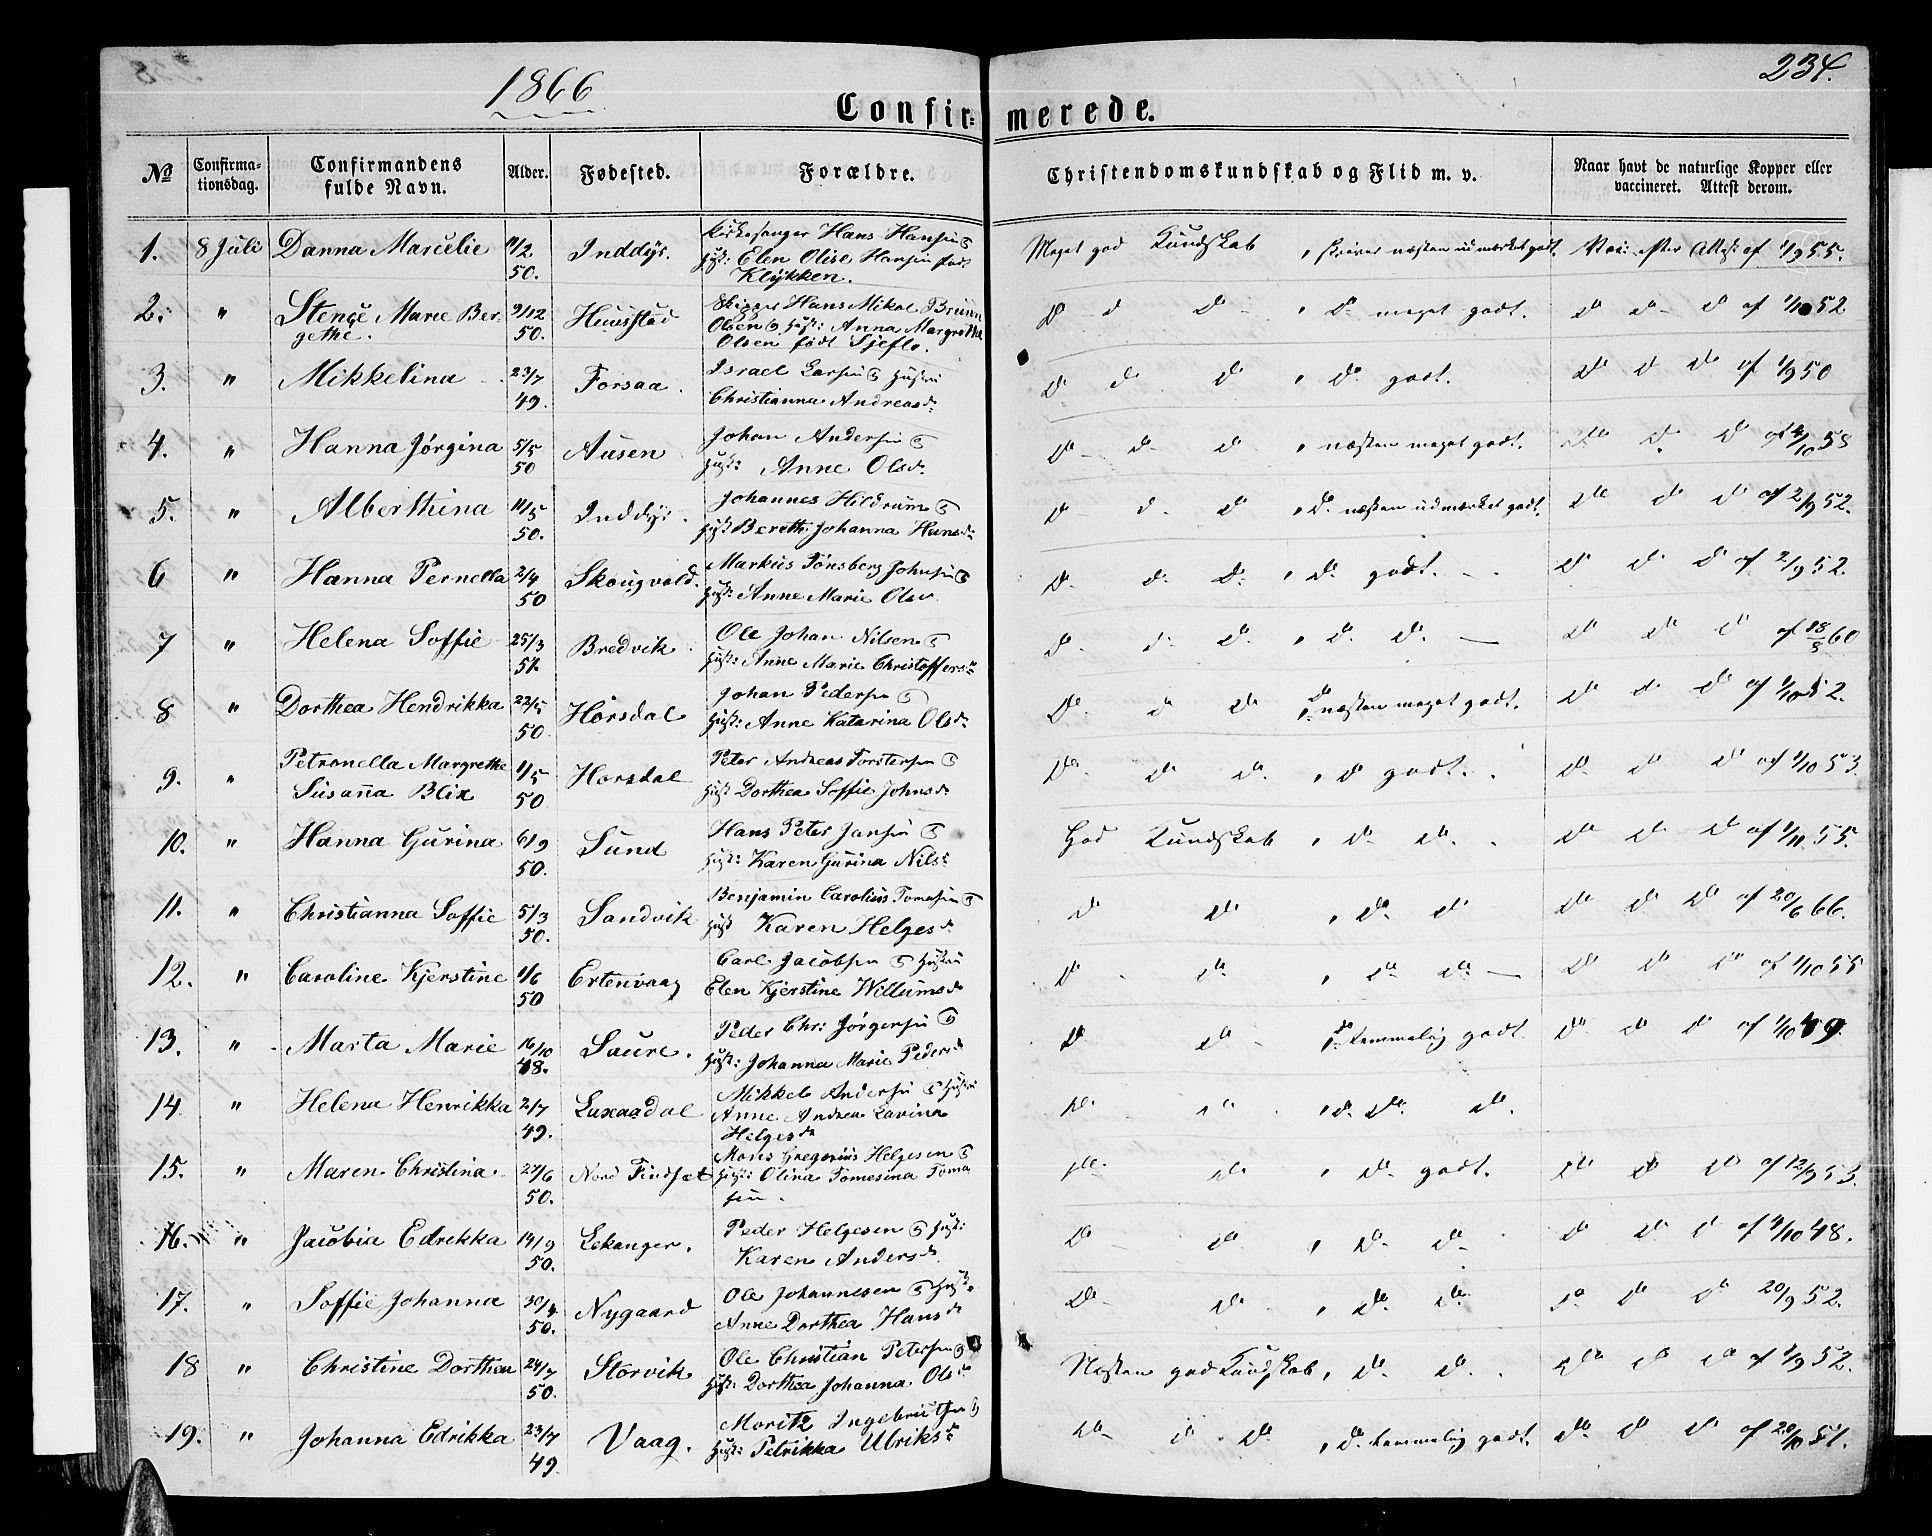 1866
234.
Confirmerede.
No
Confirmationsdag.
Confirmandens fulde Navn.
Alder.
Fødested.
Forældre.
Christendomskundskab og Flid m. v.
Naar havt de naturlige Kopper eller vaccineret. Attest derom.
1. 8 Juli Danna Marcelie 11/2 50. Inddyr. Kirkesanger Hans Hansen & Hust: Elen Olise Hansen født Klykken. Meget god Kundskab, skriver næsten udmærket godt. Vac: efter Attest af 1/9 55.
2. " Stence Marie Bergethe. 9/12 50. Huusstad Skipper Hans Mikal Bruun Olsen & Hust: Anna Margrethe Olsen født Sjeflo. Do d Do, Do meget godt. D do D af 1/10 52
3. " Mikkelina 23/7 49. Forsaa. Israel Larsen & Hustru Christianna Andreasd. D do D, Do godt. Do d Do af 1/9 50
4. " Hanna Jørgina 5/5 50 Ausen Johan Andersen & Hust: Anne Olsd. Do do D, næsten meget godt. Do d. D af
5. " Alberthina 11/5 50. Inddyr. Johannes Hildrum & Hust Bereth Johanna Hansd. D d. D, Do næsten udmærket godt. Do d D af 2/9 52.
6 " Hanna Pernella 2/4 50 Skougvold. Markus Tønsberg Johnsen & Hust: Anne Marie Olsd. D. do Do, Do godt. D do D af 2/9 52.
7 " Helena Soffie 25/3 51. Bredvik Ole Johan Nilsen & Hust: Anne Marie Christoffersd. D. d. Do, Do Do D do D af 60
8 " Dorthea Hendrikka 22/5 50. Horsdal Johan Pedersen & Hust: Anne Katarina Olsd. Do d Do, Do næsten meget godt. Do d D af 1/10 52.
9. " Petronella Margrethe Susanna Blix 1/5 50 Horsdal Peter Andreas Torstersen & Hust Dorthea Soffie Johnsd. Do do Do, D godt. Do do D af 1/10 53.
10. " Hanna Gurina 6/9 50. Sund Hans Peter Jansen & Hust: Karen Gurina Nilsd. God Kundskab, Do Do. Do do D af 1/11 55.
11. " Christianna Soffie 5/3 50. Sandvik Benjamin Carolius Tomesen & Hust Karen Helgesd. D Do, Do D Do do D af 20/6 66.
12. " Caroline Kjerstine 1/6 50 Ertenvaag Carl Jacobsen & Hustru Elen Kjerstine Willumsd. Do Do, Do Do D do D af 1/10 55
13. " Marta Marie 16/10 48. Saure. Peder Chr: Jørgensen & Hust: Johanna Marie Pedersd. D Do, Do temmelig godt. Do do D af 1/10 49.
14 " Helena Henrikka 2/7 49. Luxaadal Mikkel Andersen & Hustru Anne Andrea Lavina Helgesd. Do Do, Do Do.
15. " Maren Christina. 27/6 50. Nord Findset Mons Gregorius Helgesen & Hust: Olina Tomesina Tomasen. Do Do, Do godt. Do d Do af 12/9 53.
16. " Jacobia Edrekka 14/9 50. Lekanger. Peder Helgesen & Hust: Karen Andersd. D Do, Do Do. D do D af 48.
17. " Soffie Johanna 30/4 50. Nygaard Ole Johannesen & Hust. Anne Dorthea Hansd. Do Do, Do Do Do do Do 20/9 52.
18 " Christine Dorthea 24/7 50. Storvik Ole Christian Petersen & Hust: Dorthea Johanna Olsd. Næsten god Kundskab, Do Do. Do do Do af 1/9 52.
19. " Johanna Edrikka 23/7 49 Vaag. Moritz Ingebrictsen & Hust: Petrikka Ulriksd. Do d. Do, Do temmelig godt. Do do D af 20/10 51.